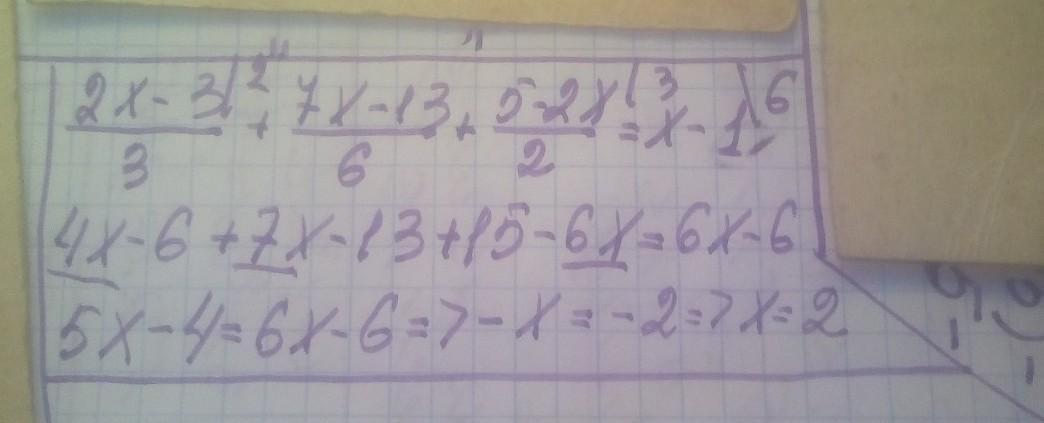 (2x-3)/3 |2 + (7x-13)/6 + (5-2x)/2 |3 = x-1 |6;
4x-6+7x-13+15-6x=6x-6
5x-4=6x-6=>-x=-2=>x=2